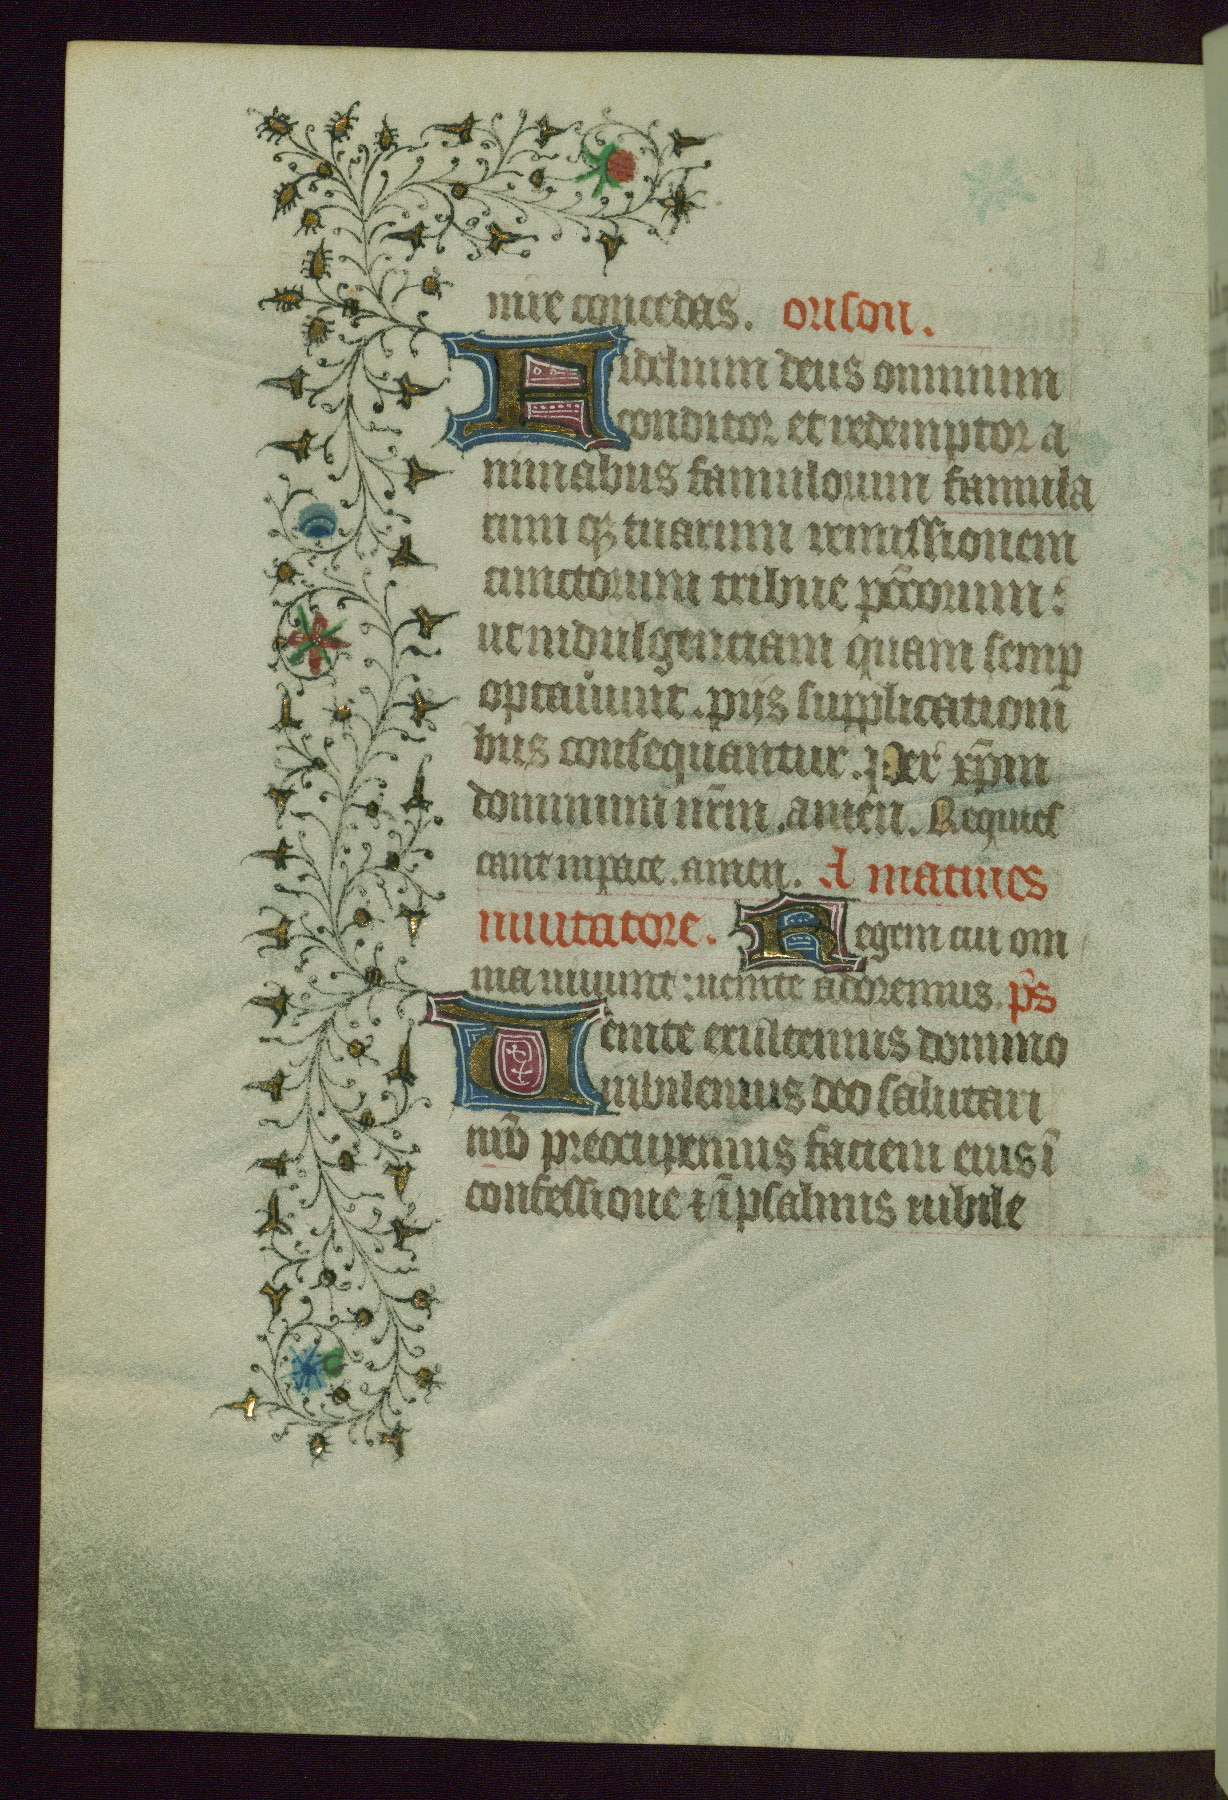 nire concedas. orison.
Fidelium deus omnium
conditor et redemptor a
nimabus famulorum famula
rum qꝫ tuarum remissionem
cunctorum tribue pc̄corum:
ut indulgenciam quam semꝑ
optauerunt. pijs supplicationi
bus consequantur. Per xp̄m
dominum nr̄m. amen. Requies
cant in pace. amen. A matines
inuitatore. Regem cui om
nia uiuunt: uenite adoremus. ps̄
Uenite exultemus domino
iubilemus deo salutari
nr̄o preocupemus faciem eius ī
confessione ⁊ ī psalmis iubile